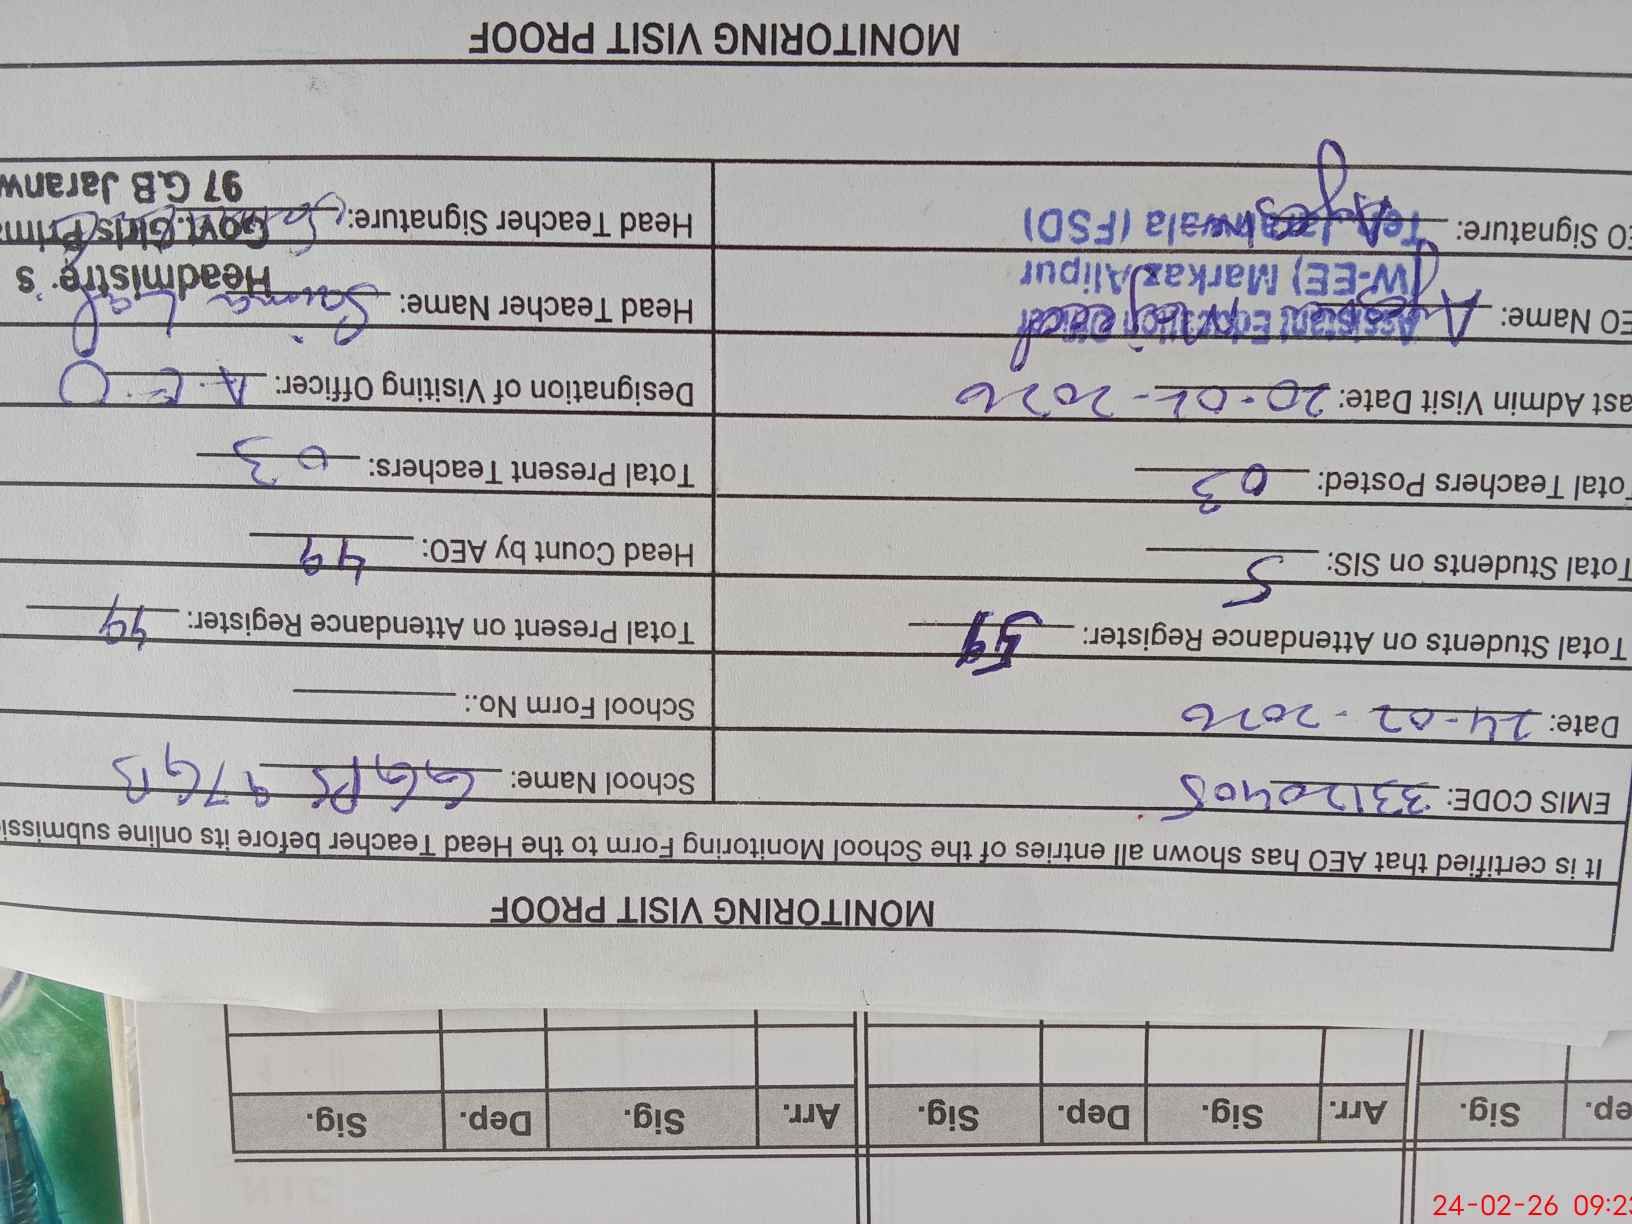 MONITORING VISIT PROOF
It is certified that AEO has shown all entries of the School Monitoring Form to the Head Teacher before its online submissi
EMIS CODE: 33120405
School Name: G.G.PS 97 GB
Date: 24-02-2026
School Form No.:
Total Students on Attendance Register: 59
Total Present on Attendance Register: 49
Total Students on SIS: 5
Head Count by AEO: 49
Total Teachers Posted: 03
Total Present Teachers: 03
ast Admin Visit Date: 20-02-2026
Designation of Visiting Officer: A.E.O
EO Name:
Assistant Education
W-EE) Markaz Alipur
Head Teacher Name: Saima
Headmistre s
EO Signature:
Teh Jaranwala (FSD)
Head Teacher Signature:
Govt. Girls Prima
97 GB Jaranw
MONITORING VISIT PROOF
ep. Sig. Arr. Sig. Dep. Sig. Arr. Sig. Dep. Sig.
24-02-26 09:23